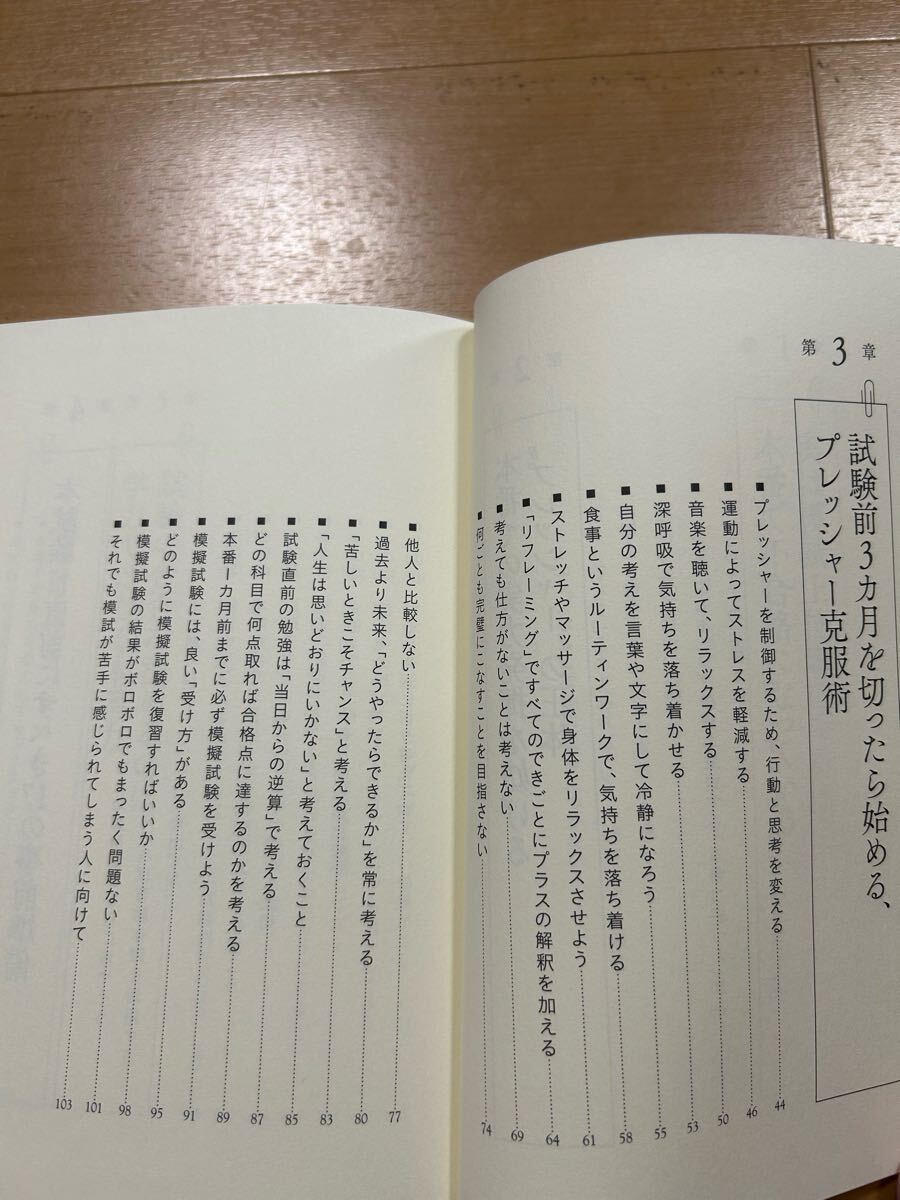 第3章
試験前3カ月を切ったら始める、
プレッシャー克服術
■プレッシャーを制御するため、行動と思考を変える 44
■運動によってストレスを軽減する 46
■音楽を聴いて、リラックスする 50
■深呼吸で気持ちを落ち着かせる 53
■自分の考えを言葉や文字にして冷静になろう 55
■食事というルーティンワークで、気持ちを落ち着ける 58
■ストレッチやマッサージで身体をリラックスさせよう 61
■「リフレーミング」ですべてのできごとにプラスの解釈を加える 64
■考えても仕方がないことは考えない 69
■何ごとも完璧にこなすことを目指さない 74
■他人と比較しない 77
■過去より未来、「どうやったらできるか」を常に考える 80
■「苦しいときこそチャンス」と考える 83
■「人生は思いどおりにいかない」と考えておくこと 85
■試験直前の勉強は「当日からの逆算」で考える 87
■どの科目で何点取れば合格点に達するのかを考える 89
■本番一カ月前までに必ず模擬試験を受けよう 91
■模擬試験には、良い「受け方」がある 95
■どのように模擬試験を復習すればいいか 98
■模擬試験の結果がボロボロでもまったく問題ない 101
■それでも模試が苦手に感じられてしまう人に向けて 103